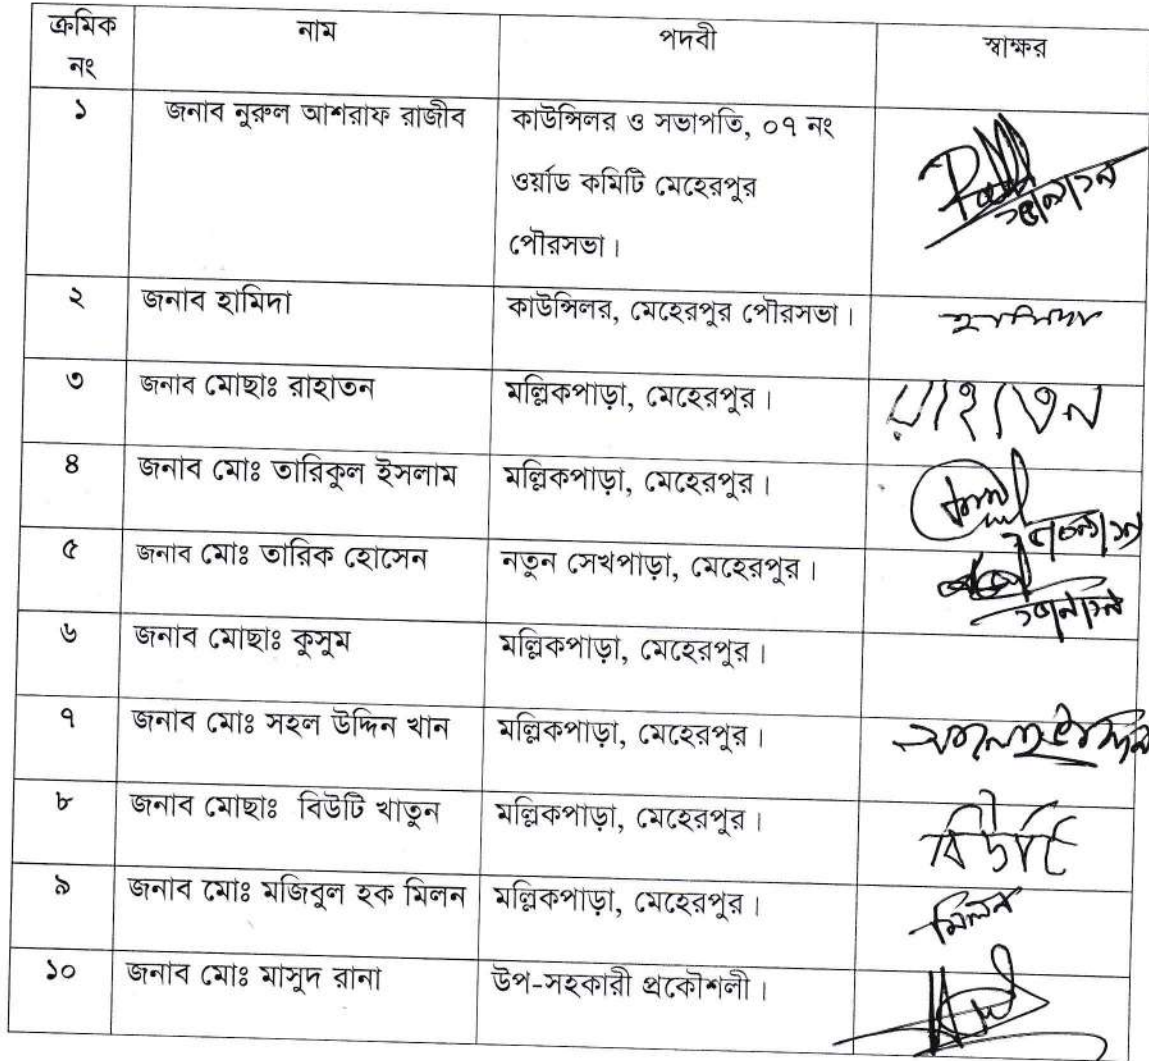 ক্রমিক নং নাম পদবী স্বাক্ষর
১ জনাব নুরুল আশরাফ রাজীব কাউন্সিলর ও সভাপতি, ০৭ নং
ওর্য়াড কমিটি মেহেরপুর
পৌরসভা।
২ জনাব হামিদা কাউন্সিলর, মেহেরপুর পৌরসভা। হামিদা
৩ জনাব মোছাঃ রাহাতন মল্লিকপাড়া, মেহেরপুর। রাহাতন
৪ জনাব মোঃ তারিকুল ইসলাম মল্লিকপাড়া, মেহেরপুর।
৫ জনাব মোঃ তারিক হোসেন নতুন সেখপাড়া, মেহেরপুর।
৬ জনাব মোছাঃ কুসুম মল্লিকপাড়া, মেহেরপুর।
৭ জনাব মোঃ সহল উদ্দিন খান মল্লিকপাড়া, মেহেরপুর।
৮ জনাব মোছাঃ বিউটি খাতুন মল্লিকপাড়া, মেহেরপুর। বিউটি
৯ জনাব মোঃ মজিবুল হক মিলন মল্লিকপাড়া, মেহেরপুর। মিলন
১০ জনাব মোঃ মাসুদ রানা উপ-সহকারী প্রকৌশলী।